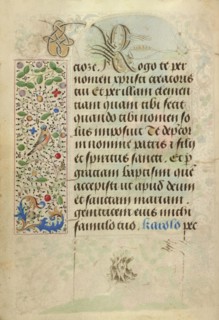 ctore. Rogo te per
nomen xpristi creatoris
tui Et per illam clemen
tiam quam tibi fecit
quando tibi nomen so
lus imposuit Te depcor
in nomine patris et filij
et spiritus sancti. Et p
gratiam baptismi que
accepisti ut apud deum
et sanctam mariam
genitricem eius michi
famulo tuo. karolo pec